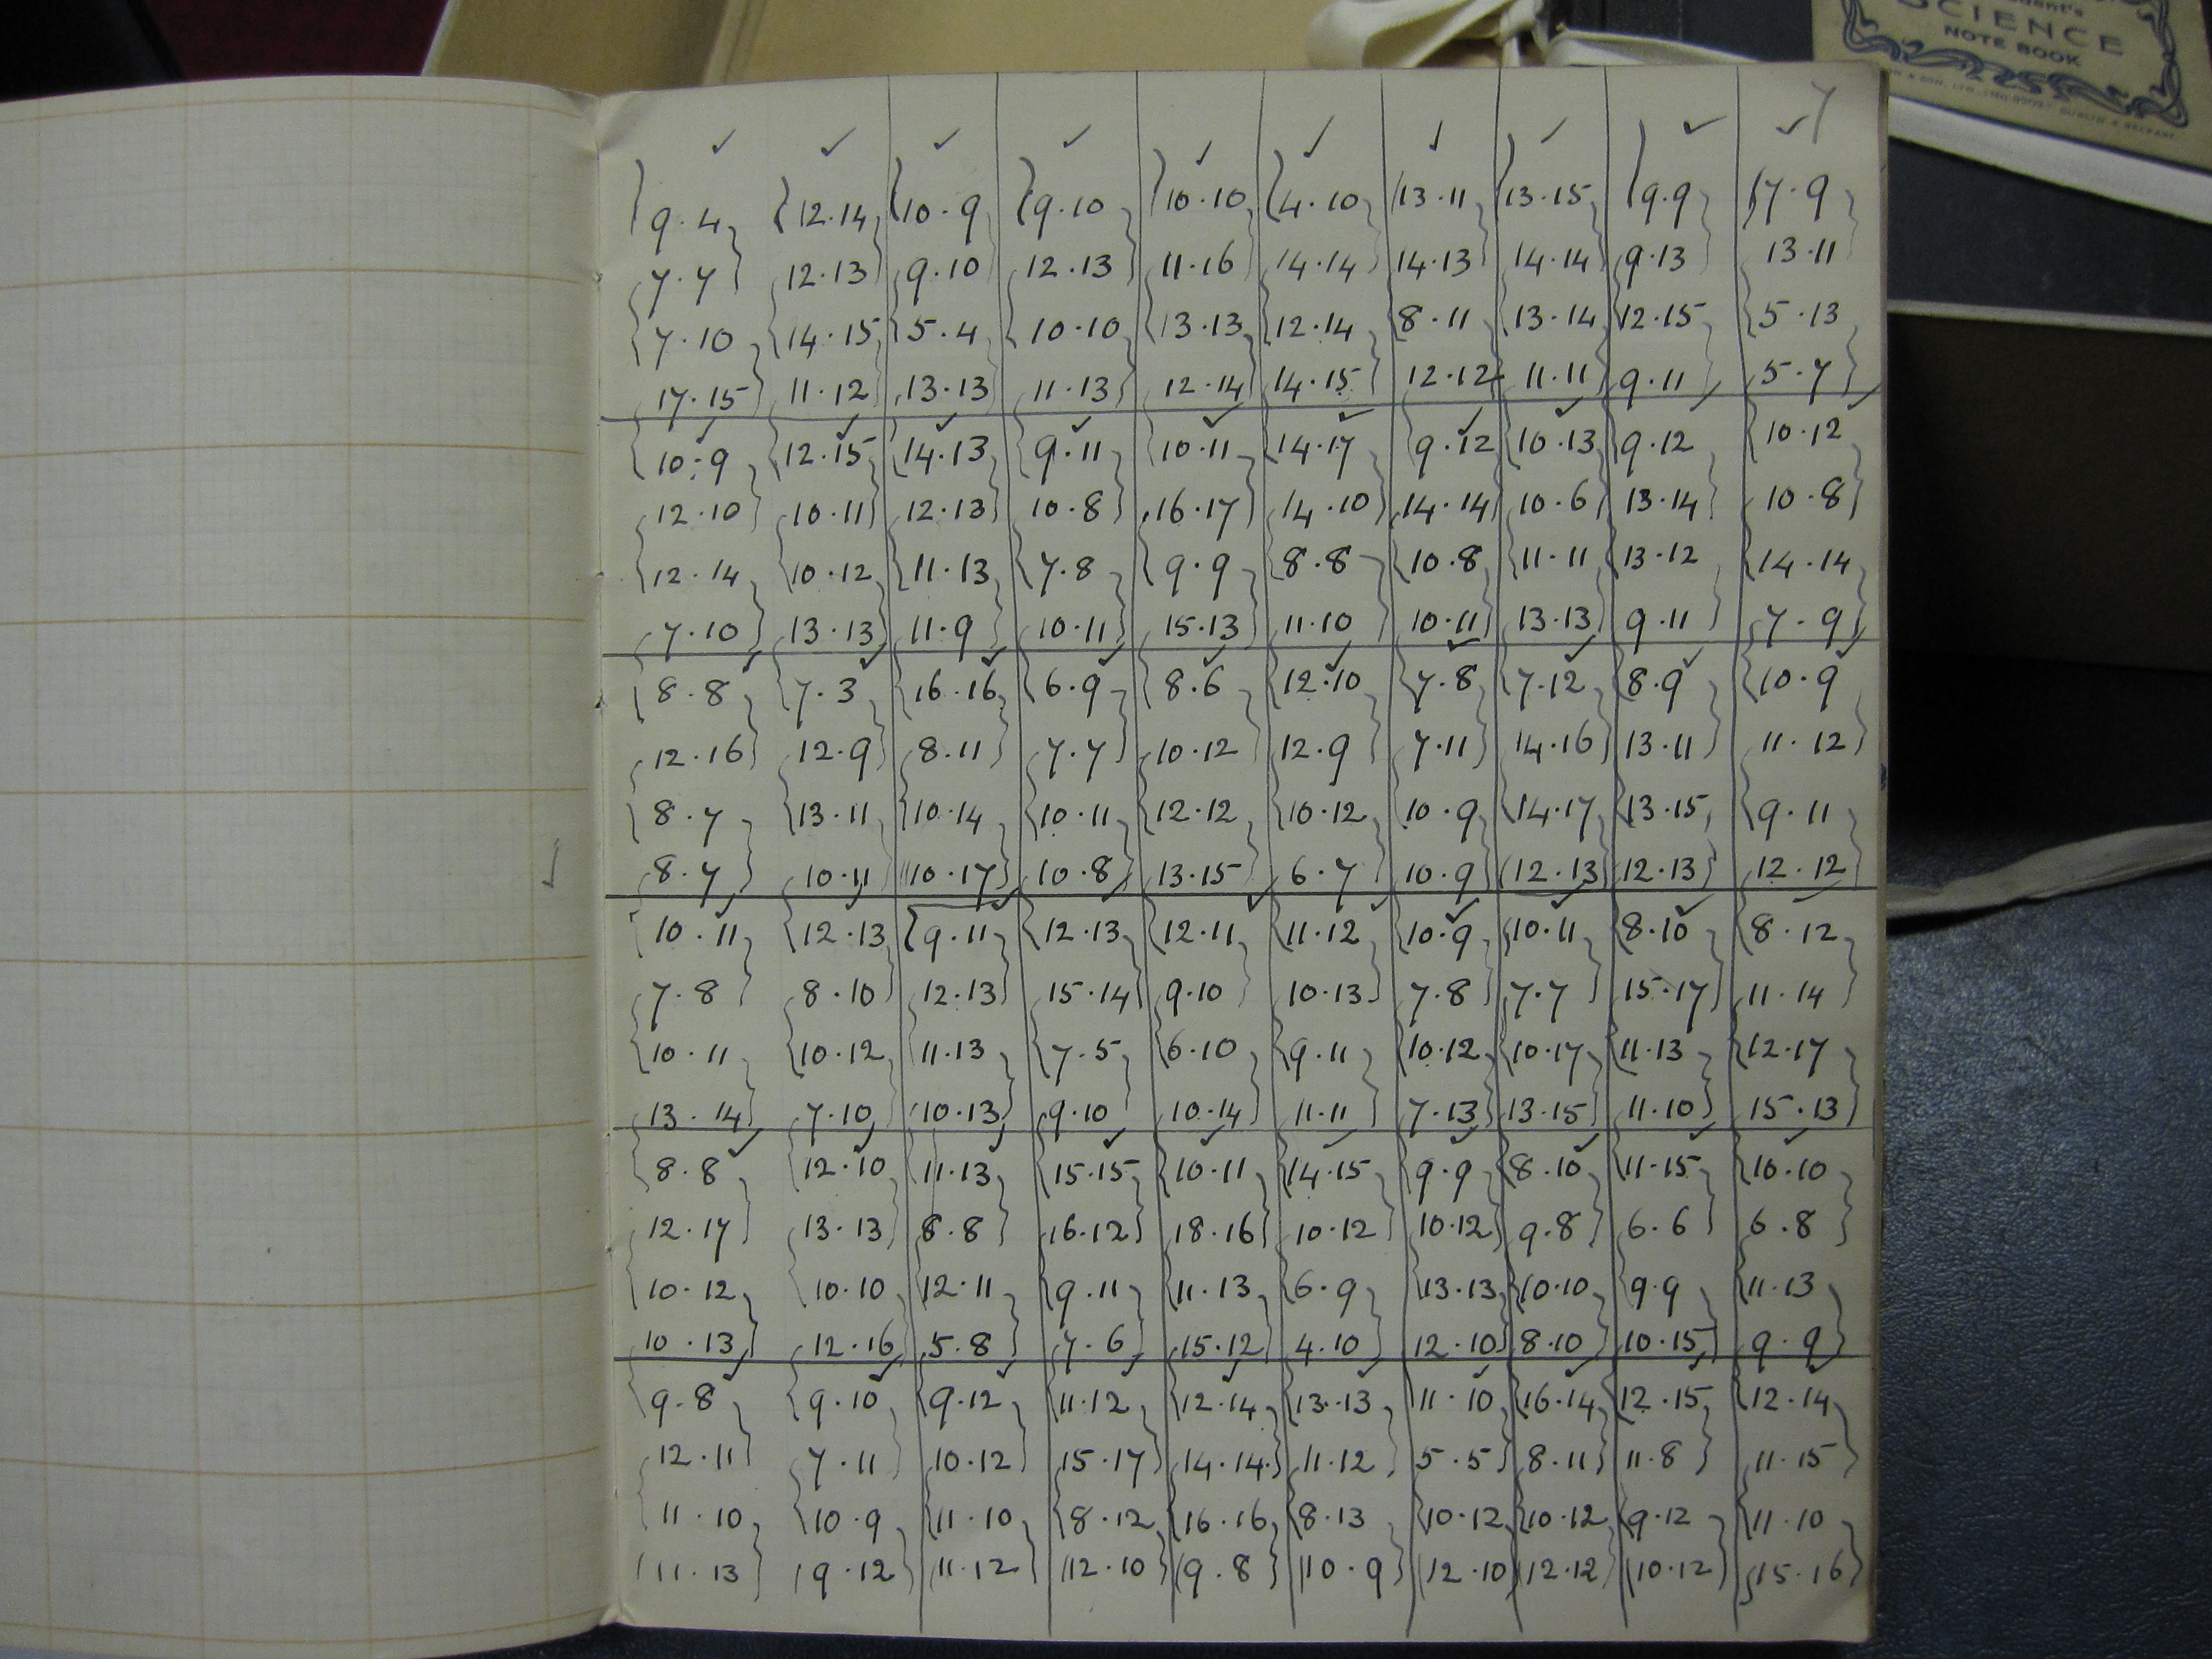 SCIENCE
NOTE BOOK
7
9.4 12.14 10.9 9.10 10.10 4.10 13.11 13.15 9.9 7.9
7.7 12.13 9.10 12.13 11.16 14.14 14.13 14.14 9.13 13.11
7.10 14.15 5.4 10.10 13.13 12.14 8.11 13.14 12.15 5.13
17.15 11.12 13.13 11.13 12.14 14.15 12.12 11.11 9.11 5.7
10.9 12.15 14.13 9.11 10.11 14.17 9.12 10.13 9.12 10.12
12.10 10.11 12.13 10.8 16.17 14.10 14.14 10.6 13.14 10.8
12.14 10.12 11.13 7.8 9.9 8.8 10.8 11.11 13.12 14.14
7.10 13.13 11.9 10.11 15.13 11.10 10.11 13.13 9.11 7.9
8.8 7.3 16.16 6.9 8.6 12.10 7.8 7.12 8.9 10.9
12.16 12.9 8.11 7.7 10.12 12.9 7.11 14.16 13.11 11.12
8.7 13.11 10.14 10.11 12.12 10.12 10.9 14.17 13.15 9.11
8.7 10.11 10.17 10.8 13.15 6.7 10.9 12.13 12.13 12.12
10.11 12.13 9.11 12.13 12.11 11.12 10.9 10.11 8.10 8.12
7.8 8.10 12.13 15.14 9.10 10.13 7.8 7.7 15.17 11.14
10.11 10.12 11.13 7.5 6.10 9.11 10.12 10.17 11.13 12.17
13.14 7.10 10.13 9.10 10.14 11.11 7.13 13.15 11.10 15.13
8.8 12.10 11.13 15.15 10.11 14.15 9.9 8.10 11.15 10.10
12.17 13.13 8.8 16.12 18.16 10.12 10.12 9.8 6.6 6.8
10.12 10.10 12.11 9.11 11.13 6.9 13.13 10.10 9.9 11.13
10.13 12.16 5.8 7.6 15.12 4.10 12.10 8.10 10.15 9.9
9.8 9.10 9.12 11.12 12.14 13.13 11.10 16.14 12.15 12.14
12.11 7.11 10.12 15.17 14.14 11.12 5.5 8.11 11.8 11.15
11.10 10.9 11.10 8.12 16.16 8.13 10.12 10.12 9.12 11.10
11.13 9.12 11.12 12.10 9.8 10.9 12.10 12.12 10.12 15.16